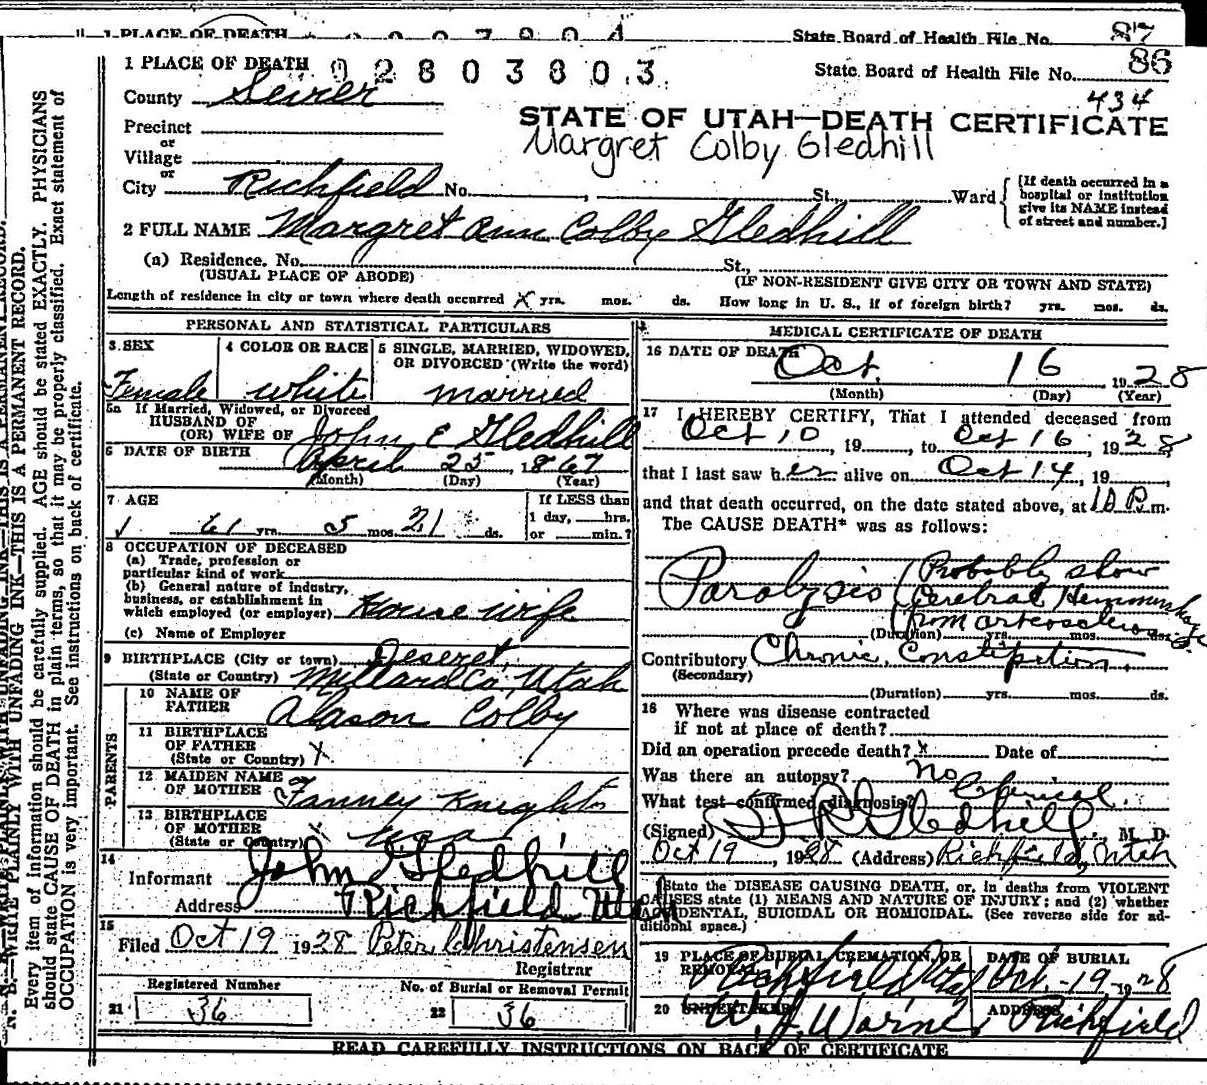 1 PLACE OF DEATH
State Board of Health File No. 87
1 PLACE OF DEATH 02803803
State Board of Health File No. 86
434
County Sevier
STATE OF UTAH—DEATH CERTIFICATE
Margret Colby Gledhill
Precinct
or
Village
or
City Richfield No. , St., Ward
[If death occurred in a hospital or institution give its NAME instead of street and number.]
2 FULL NAME Margret Ann Colby Gledhill
(a) Residence. No. St.,
(USUAL PLACE OF ABODE) (IF NON-RESIDENT GIVE CITY OR TOWN AND STATE)
Length of residence in city or town where death occurred X yrs. mos. ds. How long in U. S., if of foreign birth? yrs. mos. ds.
PERSONAL AND STATISTICAL PARTICULARS
3 SEX
Female
4 COLOR OR RACE
white
5 SINGLE, MARRIED, WIDOWED, OR DIVORCED (Write the word)
married
5a If Married, Widowed, or Divorced
HUSBAND OF
(OR) WIFE OF John E Gledhill
6 DATE OF BIRTH April 25, 1867
(Month) (Day) (Year)
7 AGE
61 yrs. 5 mos. 21 ds.
If LESS than
1 day, hrs.
or min.?
8 OCCUPATION OF DECEASED
(a) Trade, profession or
particular kind of work
(b) General nature of industry,
business, or establishment in
which employed (or employer) House wife
(c) Name of Employer
9 BIRTHPLACE (City or town) Deseret
(State or Country) Millard Co, Utah
PARENTS
10 NAME OF
FATHER Alason Colby
11 BIRTHPLACE
OF FATHER
(State or Country) X
12 MAIDEN NAME
OF MOTHER Fanney Knight
13 BIRTHPLACE
OF MOTHER
(State or Country)
14
Informant John Gledhill
Address Richfield Utah
15
Filed Oct 19 1928 Peter Christensen
Registrar
Registered Number
21 36
No. of Burial or Removal Permit
22 36
MEDICAL CERTIFICATE OF DEATH
16 DATE OF DEATH
Oct, 16 1928
(Month) (Day) (Year)
17 I HEREBY CERTIFY, That I attended deceased from
Oct 10, 19 , to Oct 16, 1928
that I last saw her alive on Oct 14, 19 ,
and that death occurred, on the date stated above, at 10 P.m.
The CAUSE DEATH* was as follows:
Paralysis (Probably slow
(Cerebral Hemmorhage
(from arterosclerosis
(Duration) yrs. mos. ds.
Contributory Chronic Constipation
(Secondary)
(Duration) yrs. mos. ds.
18 Where was disease contracted
if not at place of death?
Did an operation precede death? x Date of
Was there an autopsy? no
What test confirmed diagnosis? Clinical
(Signed) Gledhill, M. D.
Oct 19, 1928 (Address) Richfield, Utah
State the DISEASE CAUSING DEATH, or, in deaths from VIOLENT
CAUSES state (1) MEANS AND NATURE OF INJURY; and (2) whether
ACCIDENTAL, SUICIDAL OR HOMICIDAL. (See reverse side for additional space.)
19 PLACE OF BURIAL, CREMATION, OR REMOVAL
Richfield Utah
DATE OF BURIAL
Oct-19 1928
20 UNDERTAKER
W. J. Warne,
ADDRESS
Richfield
READ CAREFULLY INSTRUCTIONS ON BACK OF CERTIFICATE
N. B.—WRITE PLAINLY WITH UNFADING INK—THIS IS A PERMANENT RECORD.
Every item of information should be carefully supplied. AGE should be stated EXACTLY. PHYSICIANS
should state CAUSE OF DEATH in plain terms, so that it may be properly classified. Exact statement of
OCCUPATION is very important. See instructions on back of certificate.